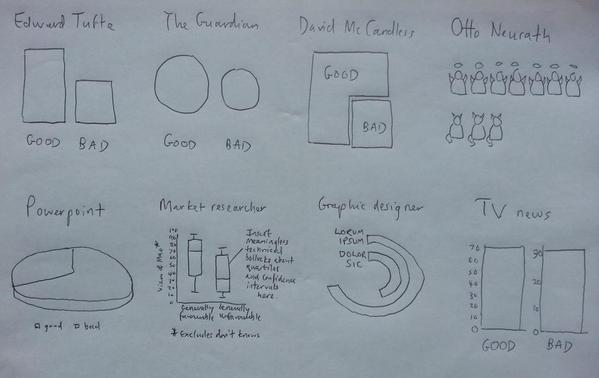 Edward Tufte
The Guardian
David McCandless
Otto Neurath
GOOD
BAD
GOOD
BAD
GOOD
BAD
Powerpoint
good
bad
Market researcher
View of Man *
100
90
80
70
60
50
40
30
20
10
0
Generally favourable
Generally unfavourable
Insert
meaningless
technical
bollocks about
quartiles
and confidence
intervals
here.
* Excludes don't knows
Graphic designer
LORUM
IPSUM
DOLOR
SIC
TV news
70
60
50
40
30
20
10
0
GOOD
30
20
10
0
BAD